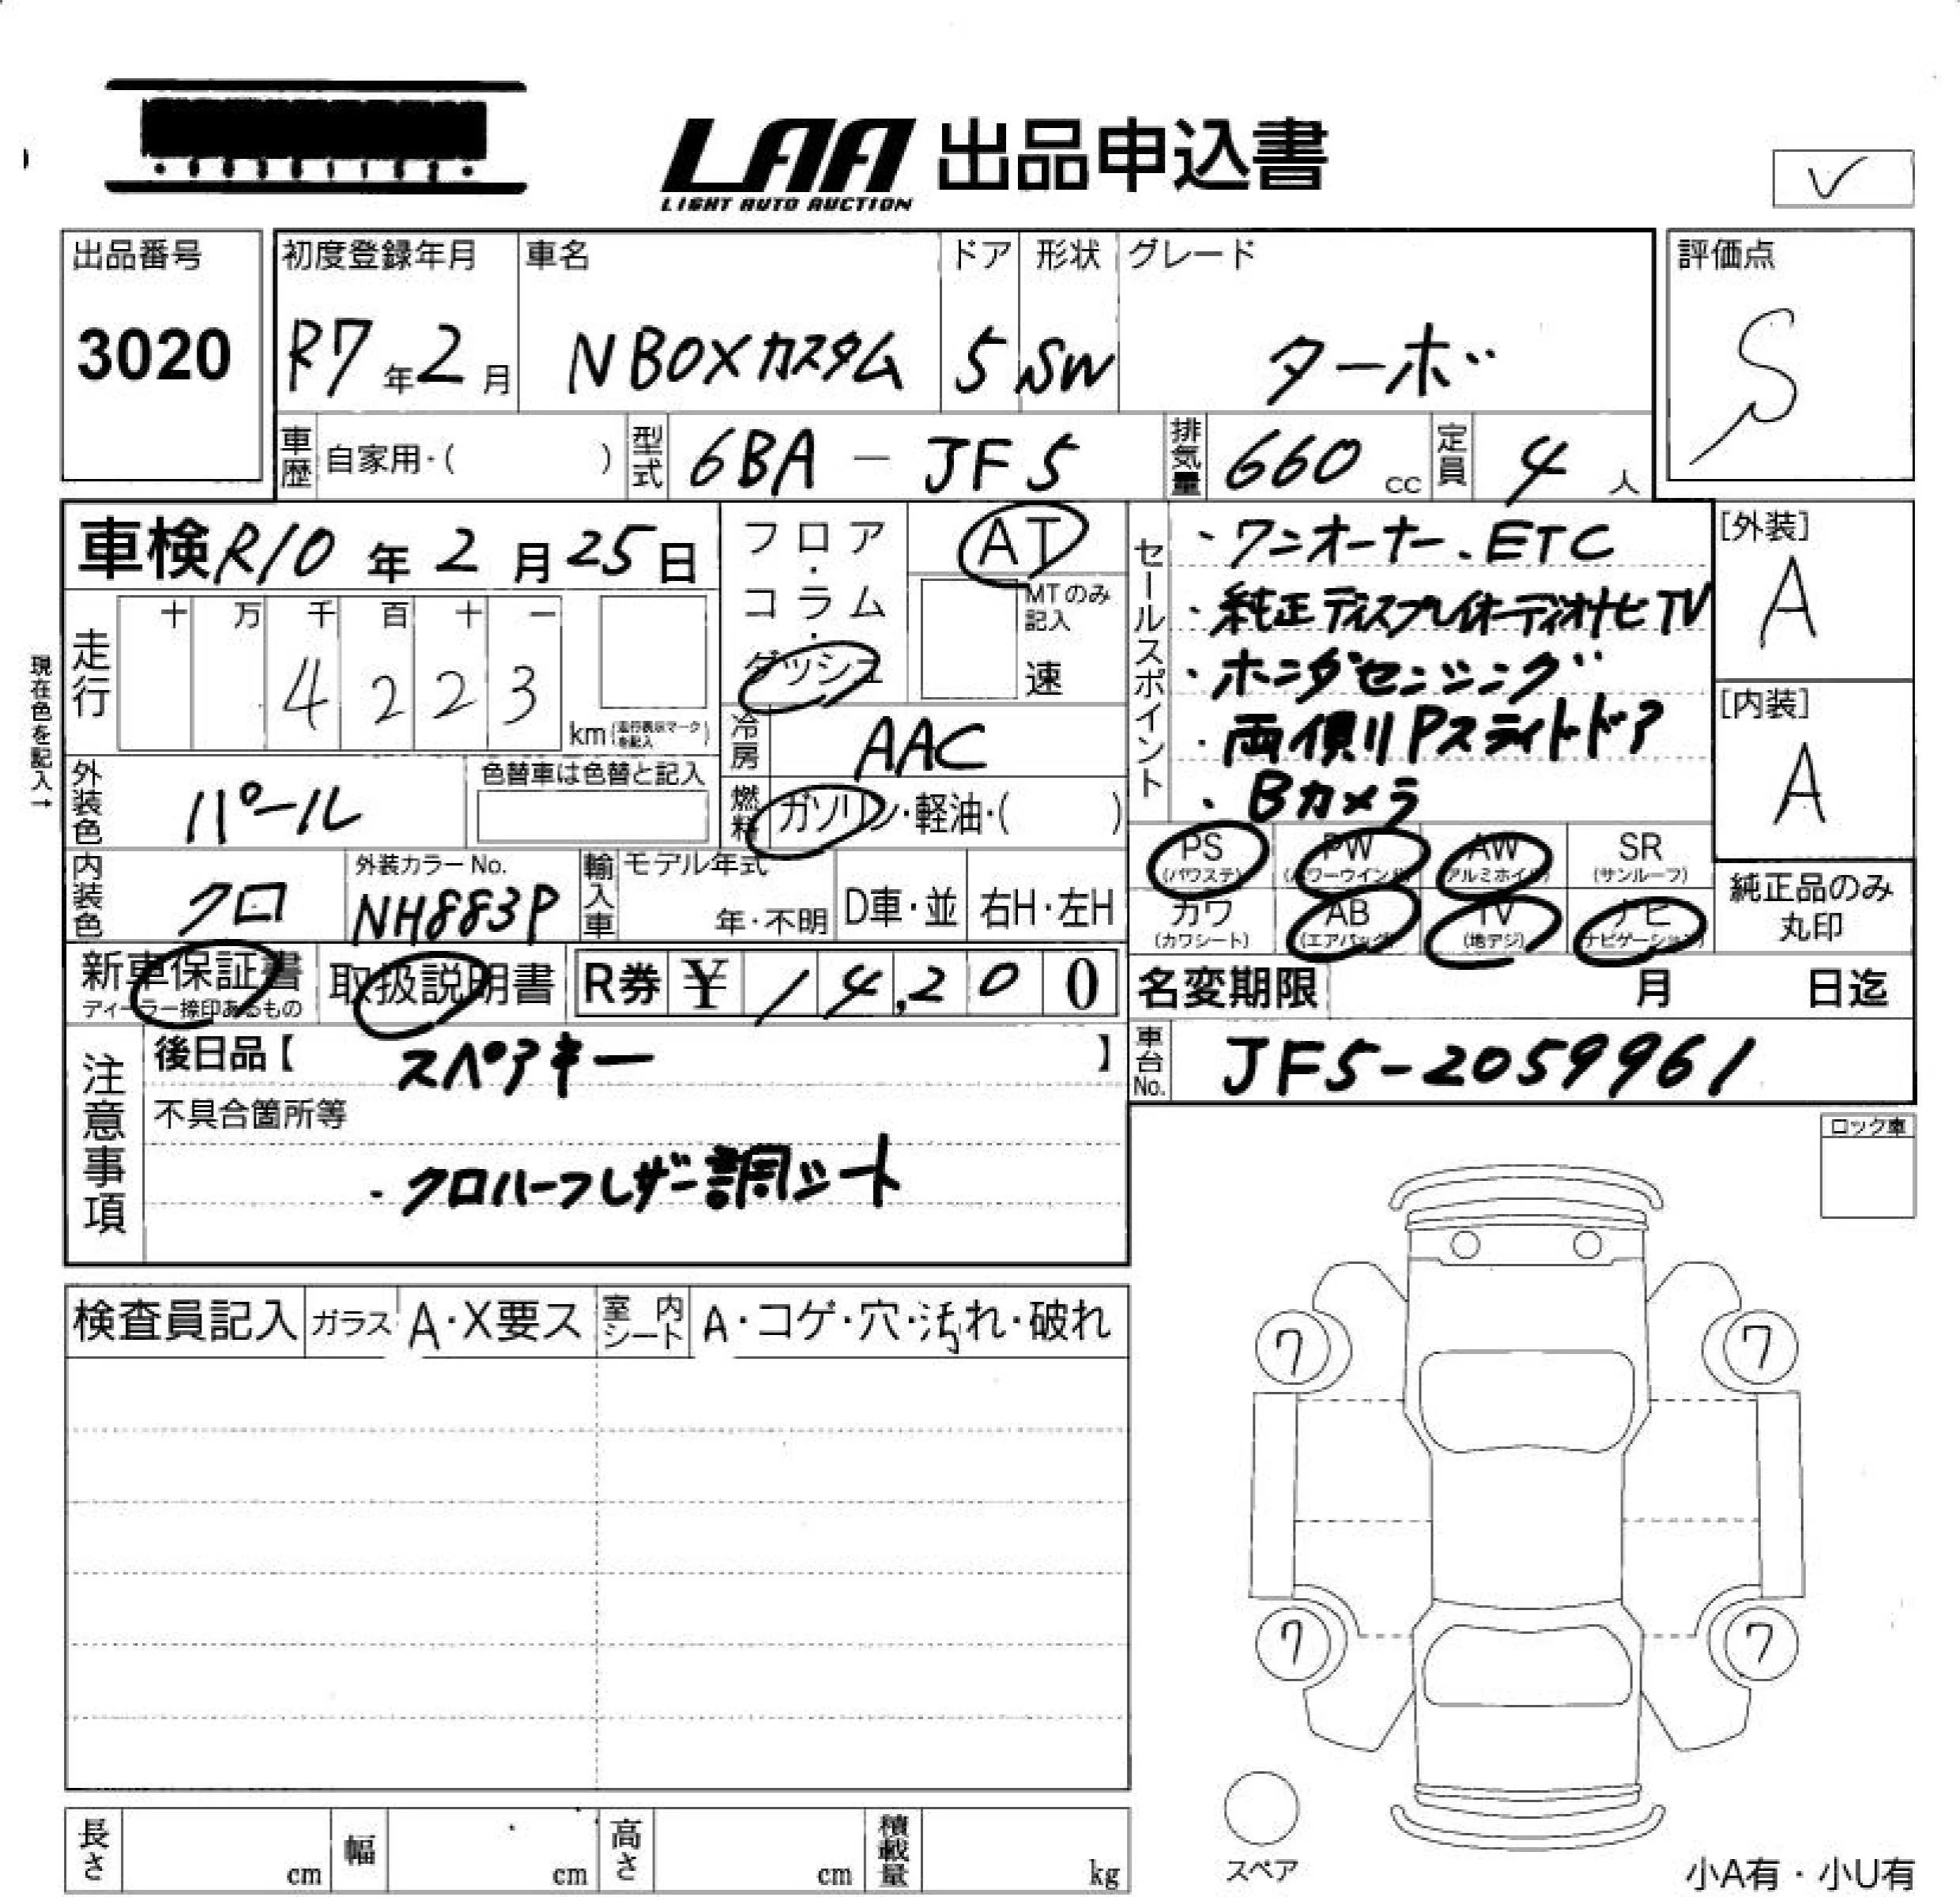 LAA 出品申込書
LIGHT AUTO AUCTION
出品番号
3020
初度登録年月
R7年2月
車名
N BOXカスタム
ドア
5
形状
SW
グレード
ターボ
評価点
S
車歴 自家用・( )
型式 6BA - JF5
排気量 660 cc
定員 4 人
車検 R10年2月25日
走行
十 万 千 百 十 一
4 2 2 3
km(走行表示マークを記入)
現在色を記入→
フロア・コラム・ダッシュ
AT
MTのみ記入
速
冷房 AAC
燃料 ガソリン・軽油・( )
外装色 パール
色替車は色替と記入
内装色 クロ
外装カラーNo.
NH883P
輸入車
モデル年式
年・不明
D車・並
右H・左H
セールスポイント
・ワンオーナー、ETC
・純正ディスプレイオーディオナビTV
・ホンダセンシング
・両側Pスライドドア
・Bカメラ
[外装]
A
[内装]
A
PS (パワステ)
PW (パワーウインド)
AW (アルミホイル)
SR (サンルーフ)
カワ (カワシート)
AB (エアバッグ)
TV (地デジ)
ナビ (ナビゲーション)
純正品のみ丸印
新車保証書
ディーラー捺印あるもの
取扱説明書
R券 ¥ 14,200
名変期限 月 日迄
車台No. JF5-2059961
注意事項
後日品【 スペアキー 】
不具合箇所等
・クロハーフレザー調シート
ロック車
検査員記入
ガラス A・X要ス
室内シート A・コゲ・穴・汚れ・破れ
ワ
ワ
ワ
ワ
スペア
長さ cm
幅 cm
高さ cm
積載量 kg
小A有・小U有